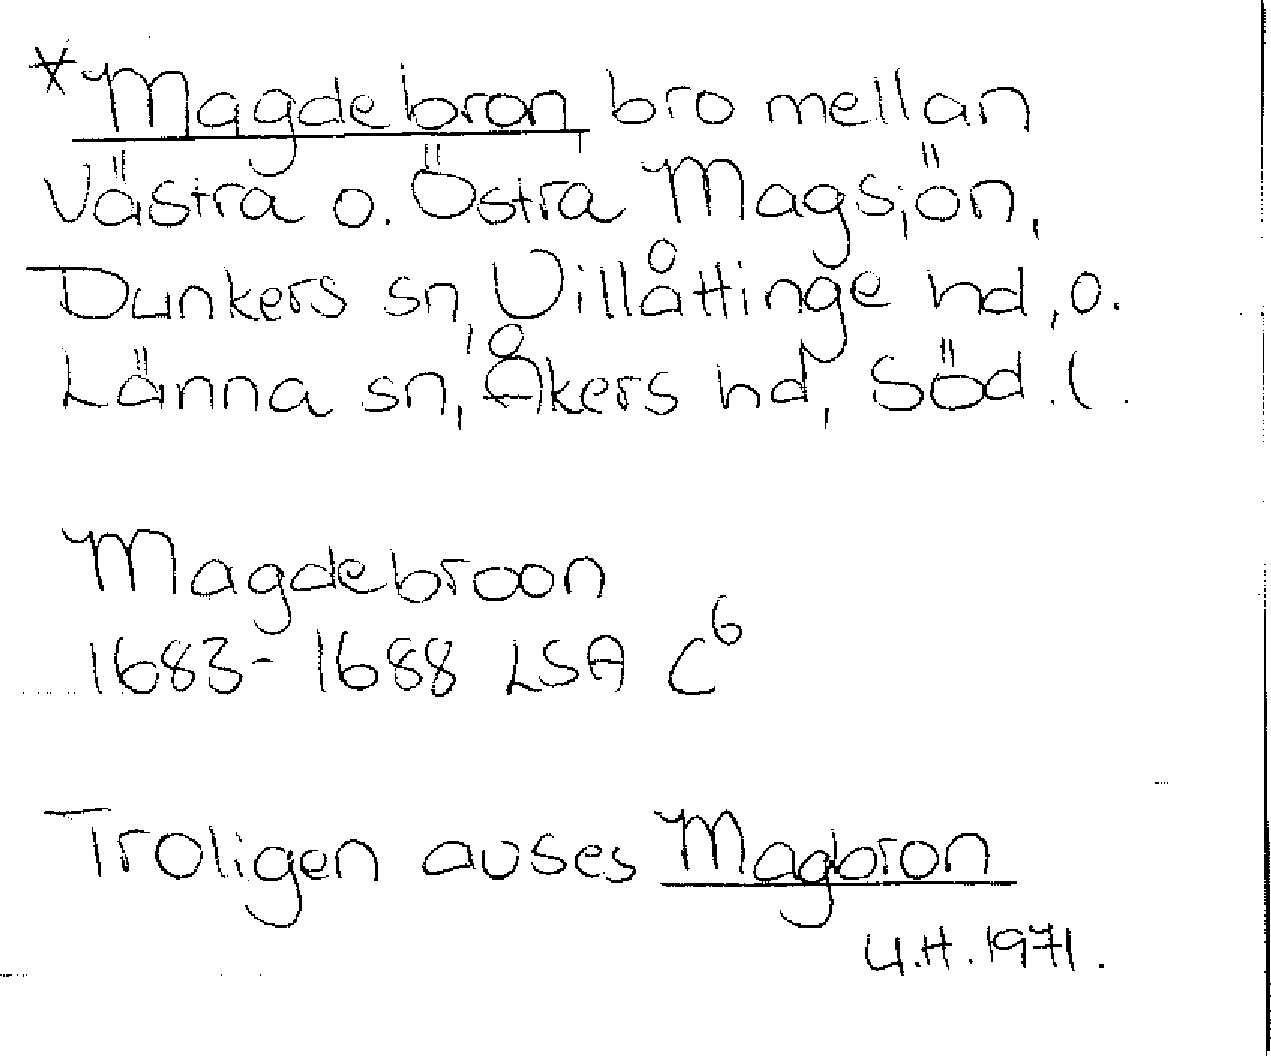 *Magdebron, bro mellan
Västra o. Östra Magsjön,
Dunkers sn, Villåttinge hd, o.
Länna sn, Åkers hd, Söd. l.
Magdebroon
1683-1688 LSA C⁶
Troligen avses Magbron
U.H. 1971.